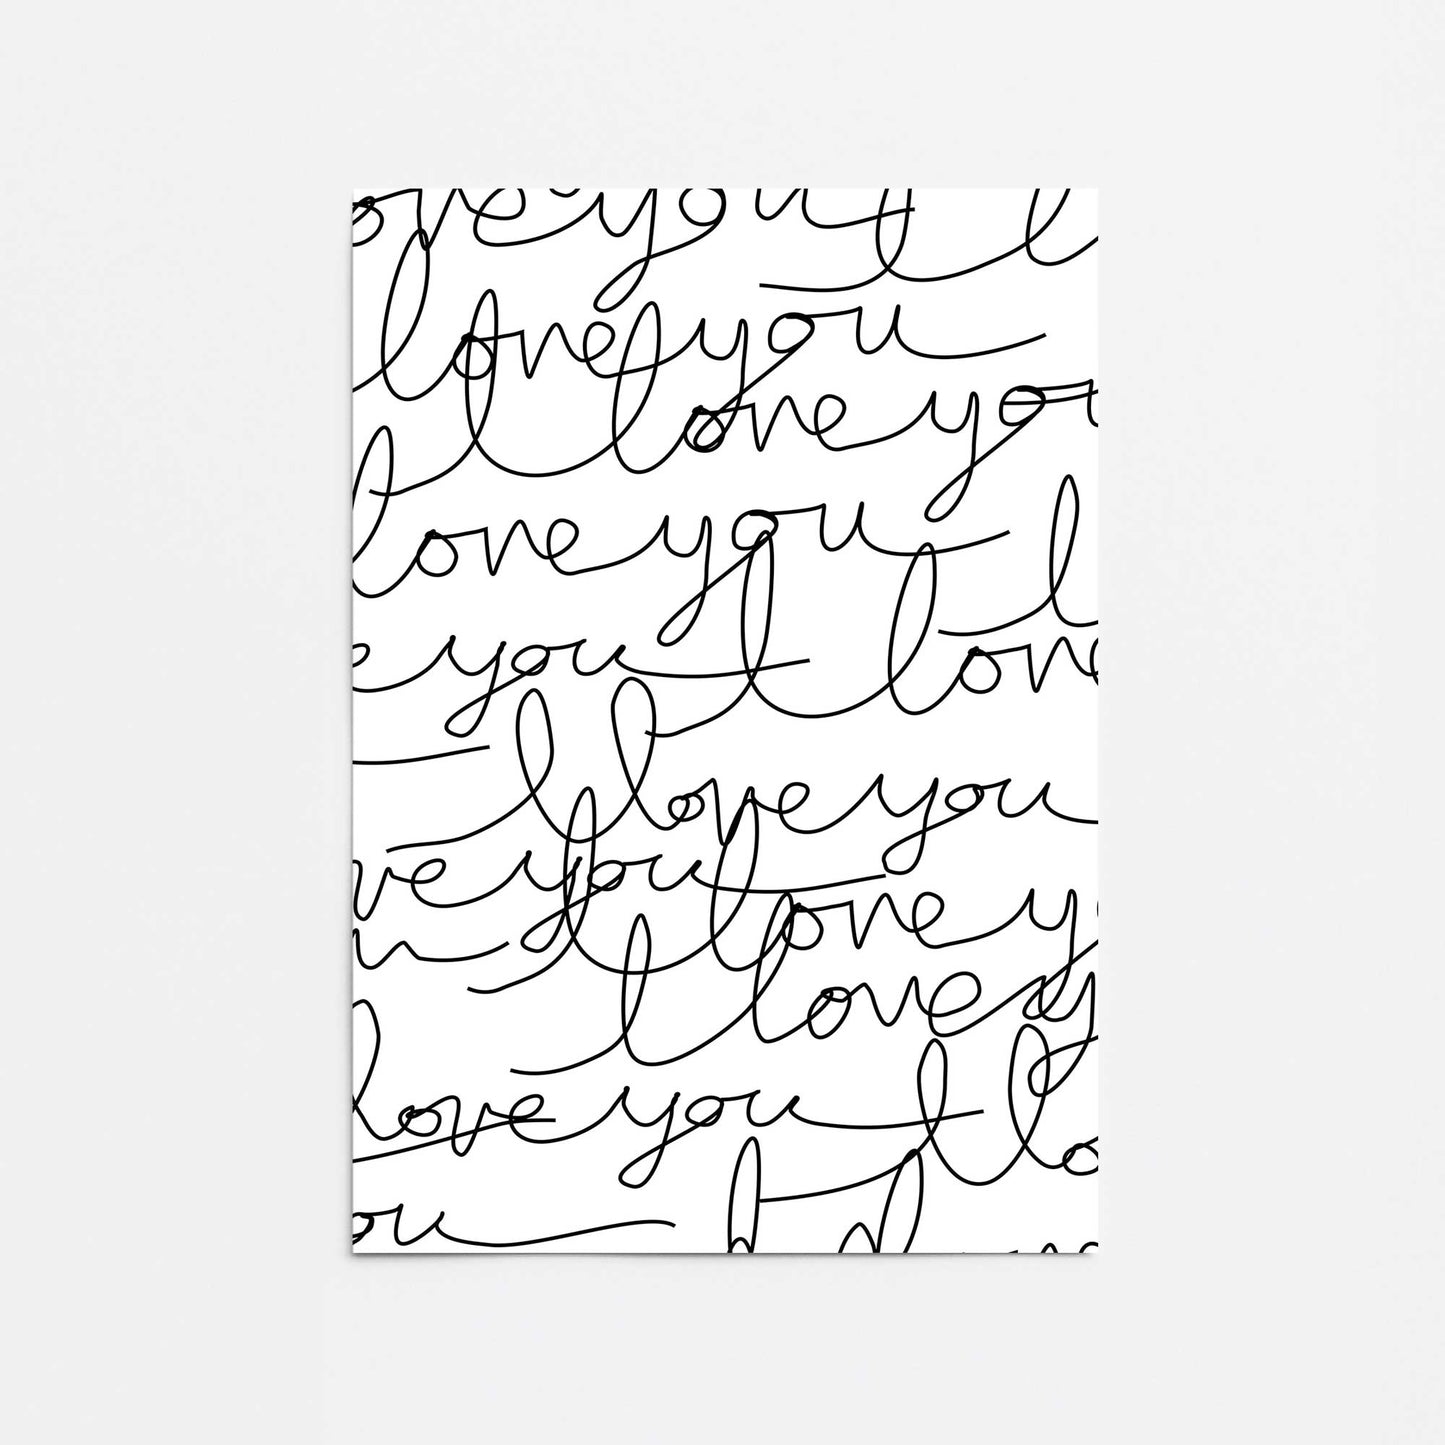 ove you I l
love you
I love you
love you I
e you I love
I love you
ve you I love y
u I love y
love you I lo
ou I